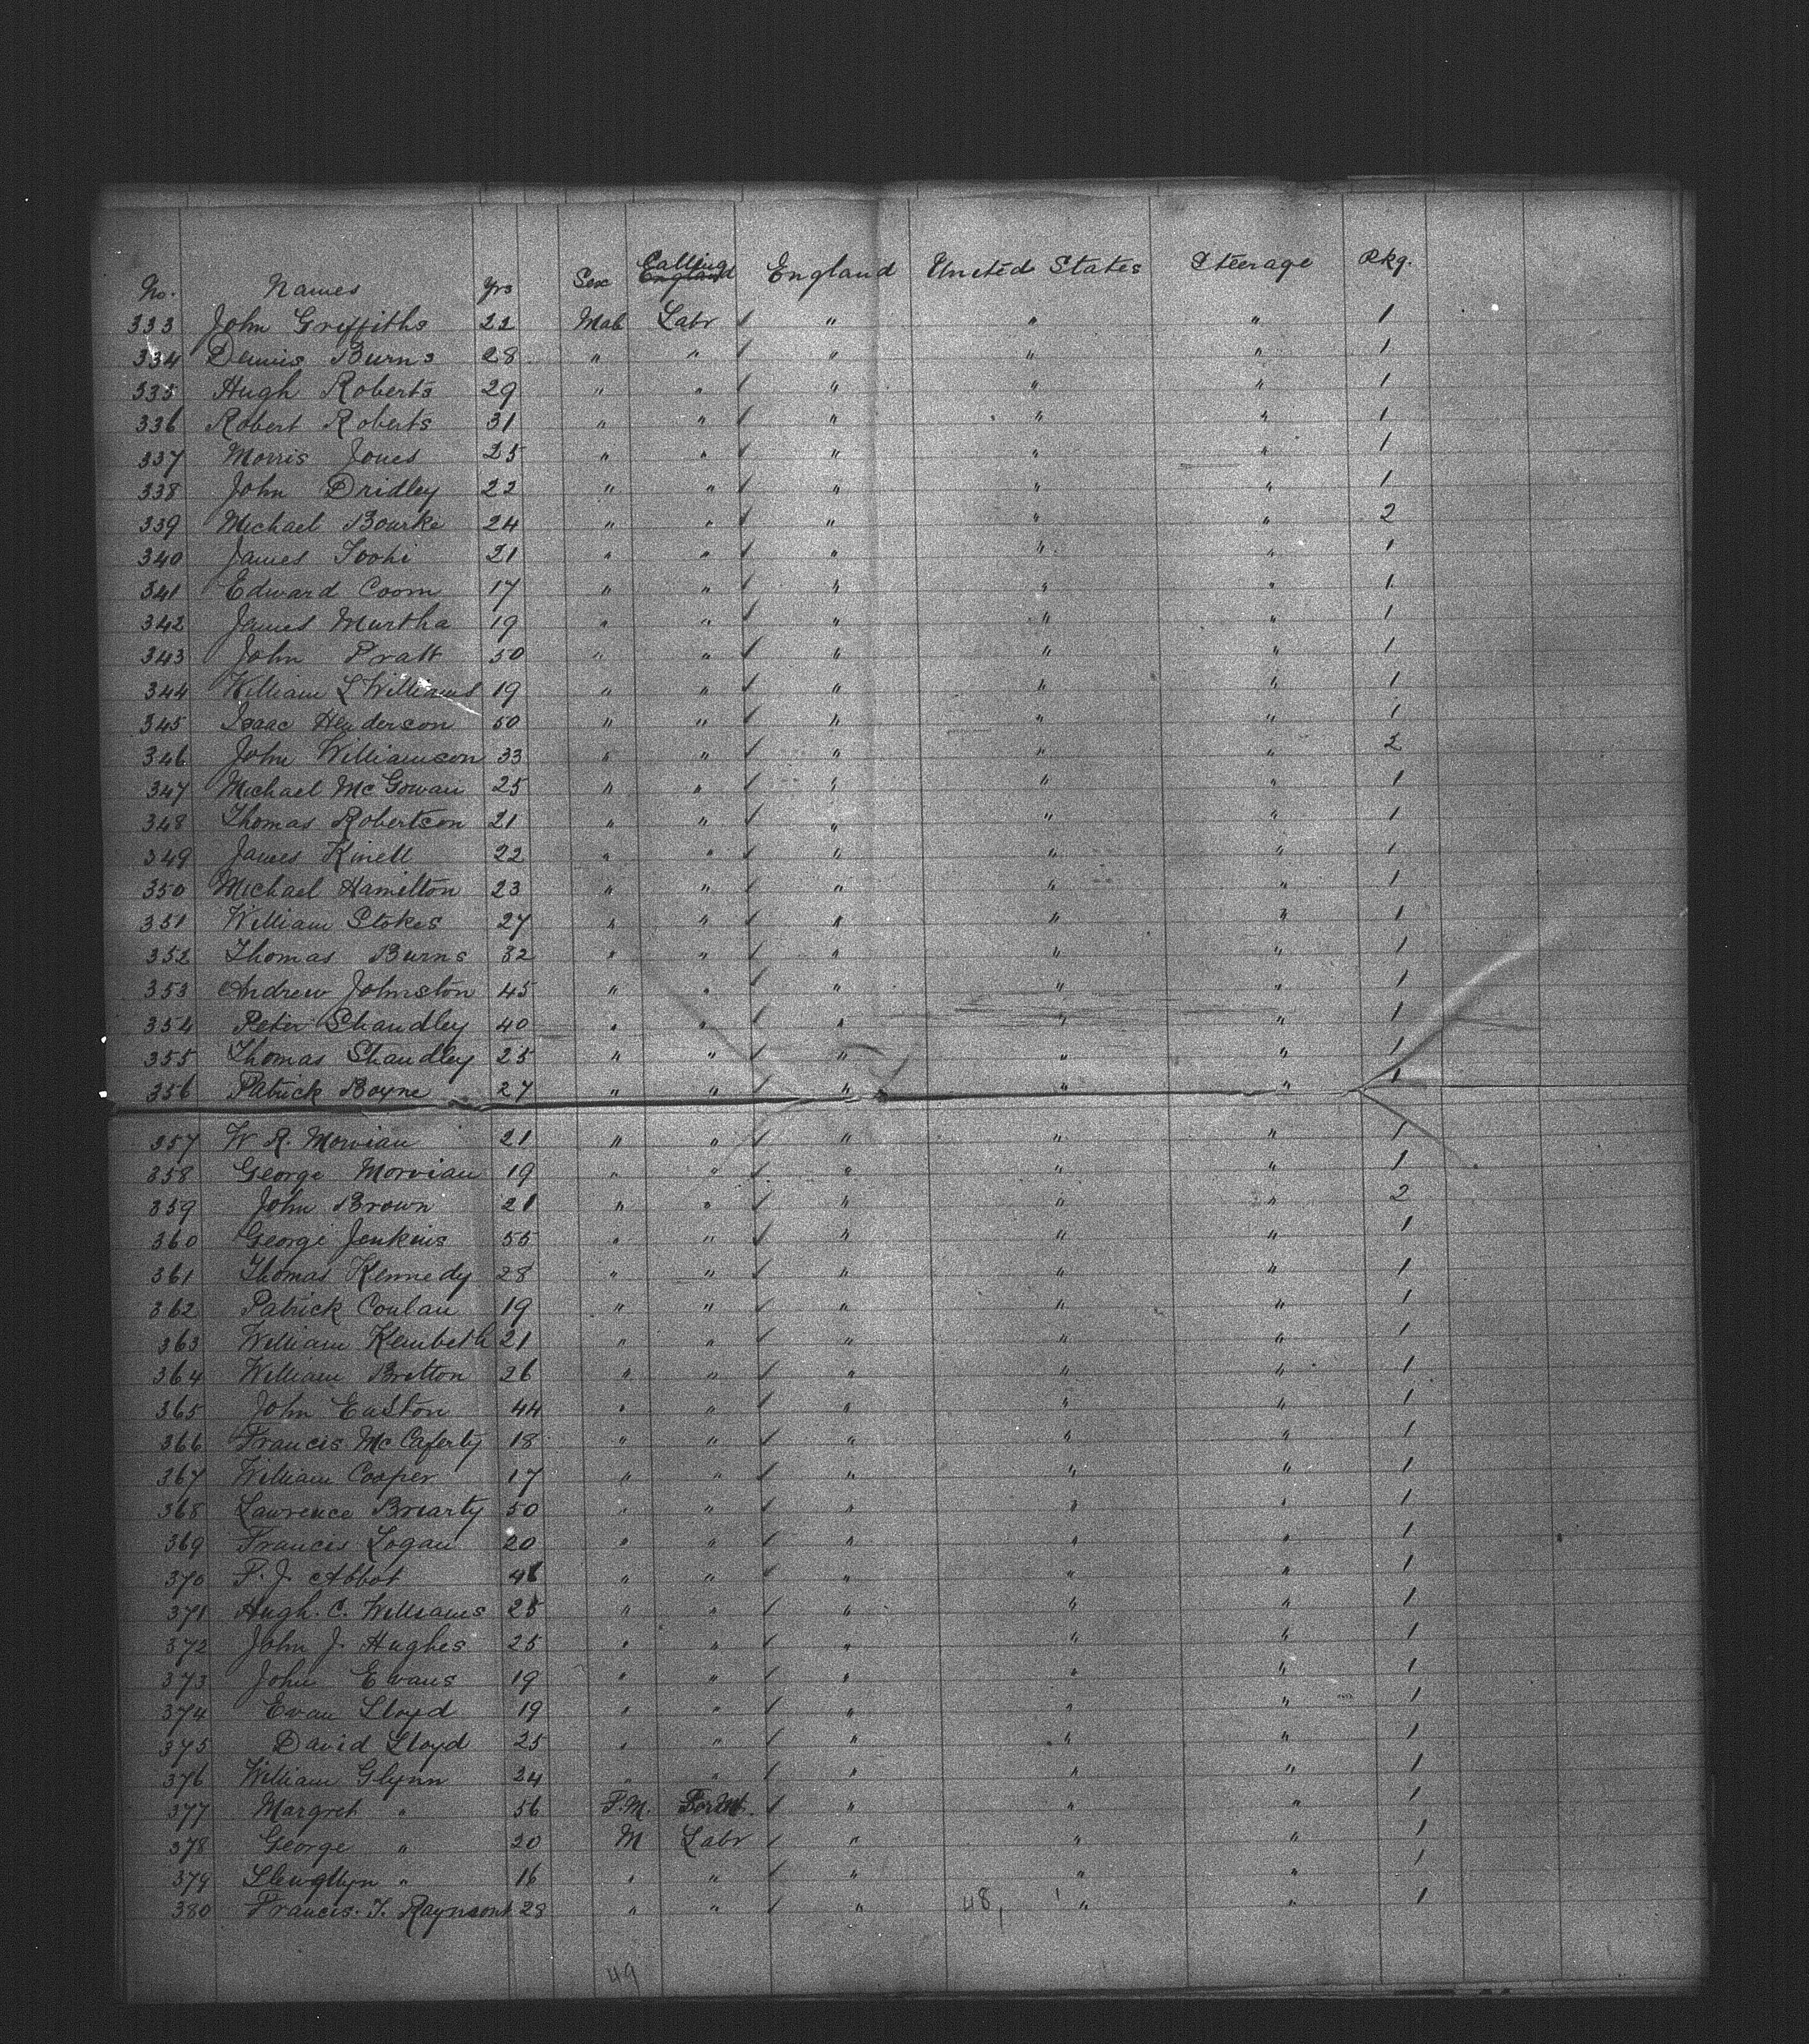 No. Names Yrs Sex Calling England England United States Steerage Pkg.
333 John Griffiths 22 Male Labr ✓ " " " 1
334 Dennis Burns 28 " " ✓ " " " 1
335 Hugh Roberts 29 " " ✓ " " " 1
336 Robert Roberts 31 " " ✓ " " " 1
337 Morris Jones 25 " " ✓ " " " 1
338 John Dridley 22 " " ✓ " " " 1
339 Michael Bourke 24 " " ✓ " " " 2
340 James Toohi 21 " " ✓ " " " 1
341 Edward Coom 17 " " ✓ " " " 1
342 James Murtha 19 " " ✓ " " " 1
343 John Pratt 50 " " ✓ " " " 1
344 William L Williams 19 " " ✓ " " " 1
345 Isaac Henderson 50 " " ✓ " " " 1
346 John Williamson 33 " " ✓ " " " 2
347 Michael McGowan 25 " " ✓ " " " 1
348 Thomas Robertson 21 " " ✓ " " " 1
349 James Kinell 22 " " ✓ " " " 1
350 Michael Hamilton 23 " " ✓ " " " 1
351 William Stokes 27 " " ✓ " " " 1
352 Thomas Burns 32 " " ✓ " " " 1
353 Andrew Johnston 45 " " ✓ " " " 1
354 Peter Shandley 40 " " ✓ " " " 1
355 Thomas Shandley 25 " " ✓ " " " 1
356 Patrick Boyne 27 " " ✓ " " " 1
357 W R. Morvian 21 " " ✓ " " " 1
358 George Morvian 19 " " ✓ " " " 1
359 John Brown 21 " " ✓ " " " 2
360 George Jenkins 55 " " ✓ " " " 1
361 Thomas Kennedy 28 " " ✓ " " " 1
362 Patrick Conlan 19 " " ✓ " " " 1
363 William Kembeth 21 " " ✓ " " " 1
364 William Britton 26 " " ✓ " " " 1
365 John Easton 44 " " ✓ " " " 1
366 Francis McCaferty 18 " " ✓ " " " 1
367 William Cooper 17 " " ✓ " " " 1
368 Lawrence Briarty 50 " " ✓ " " " 1
369 Francis Logan 20 " " ✓ " " " 1
370 P. J. Abbot " " ✓ " " " 1
371 Hugh. C. Williams 25 " " ✓ " " " 1
372 John J. Hughes 25 " " ✓ " " " 1
373 John Evans 19 " " ✓ " " " 1
374 Evan Lloyd 19 " " ✓ " " " 1
375 David Lloyd 25 " " ✓ " " " 1
376 William Glynn 24 " " ✓ " " " 1
377 Margret " 56 F.M. ✓ " " " 1
378 George " 20 M Labr ✓ " " " 1
379 Llewyllyn " 16 " " ✓ " " " 1
380 Francis. T. Raynsont 28 " " ✓ " 48, " " 1
49